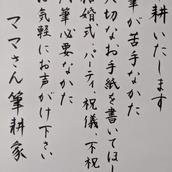 耕いたします
筆が苦手なかた
大切なお手紙を書いてほし
結婚式・パーティ、祝儀、不祝
代筆必要なかた
お気軽にお声がけ下さい
ママさん筆耕家